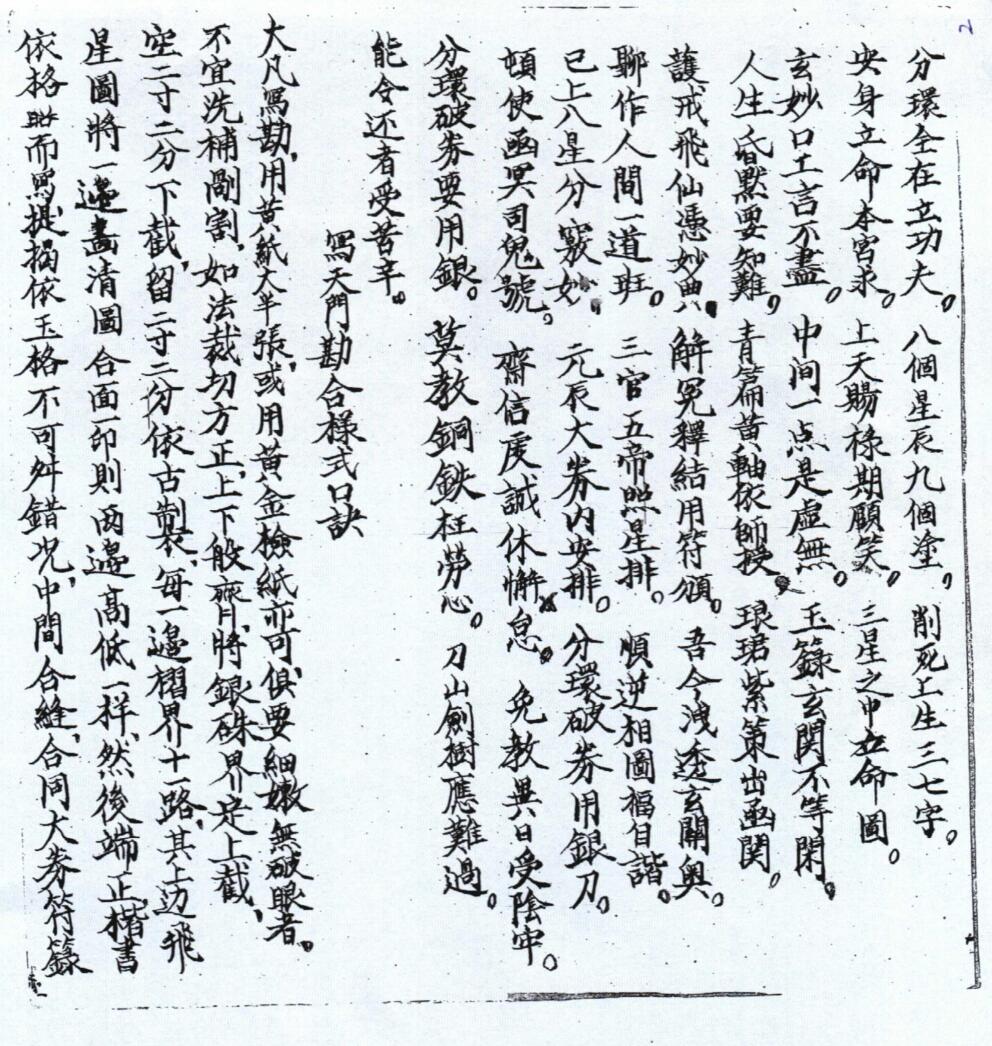 2
分環全在立功夫。八個星辰九個塗。削死上生三七字。
央身立命本宮求。上天賜祿期顧笑。三星之中立命圖。
玄妙口工言不盡。中间一点是虛無。玉籙玄関不等閑。
人生昏默要知難。青篇黃軸依師授。琅珺紫策出函関。
護戒飛仙憑妙典。解冤釋結用符頒。吾今洩透玄關奥。
聊作人間一道班。三官五帝照星排。順逆相圖福自諧。
已上八星分竅妙。元辰大券内安排。分環破券用銀刀。
頓使函冥司鬼號。齋信虔誠休懈怠。免教異日受陰牢。
分環破券要用銀。莫教銅鉄枉勞心。刀山劍樹應難過。
能令还者受苦辛。
寫天門勘合様式口訣
大凡寫勘，用黄紙大半張，或用黄金檢紙亦可，俱要細嫩無破眼者。
不宜洗補剮割，如法裁切方正，上下般齊，將銀硃界定上截，
空二寸二分下截，留二寸二分，依古制裝，每一邉摺界十一路，其上边飛
星圖將一邉畫清圖合面一印則两邉髙低一样，然後端正楷書
依格照而寫，提搨依玉格不可舛錯况，中間合縫，合同大券符籙